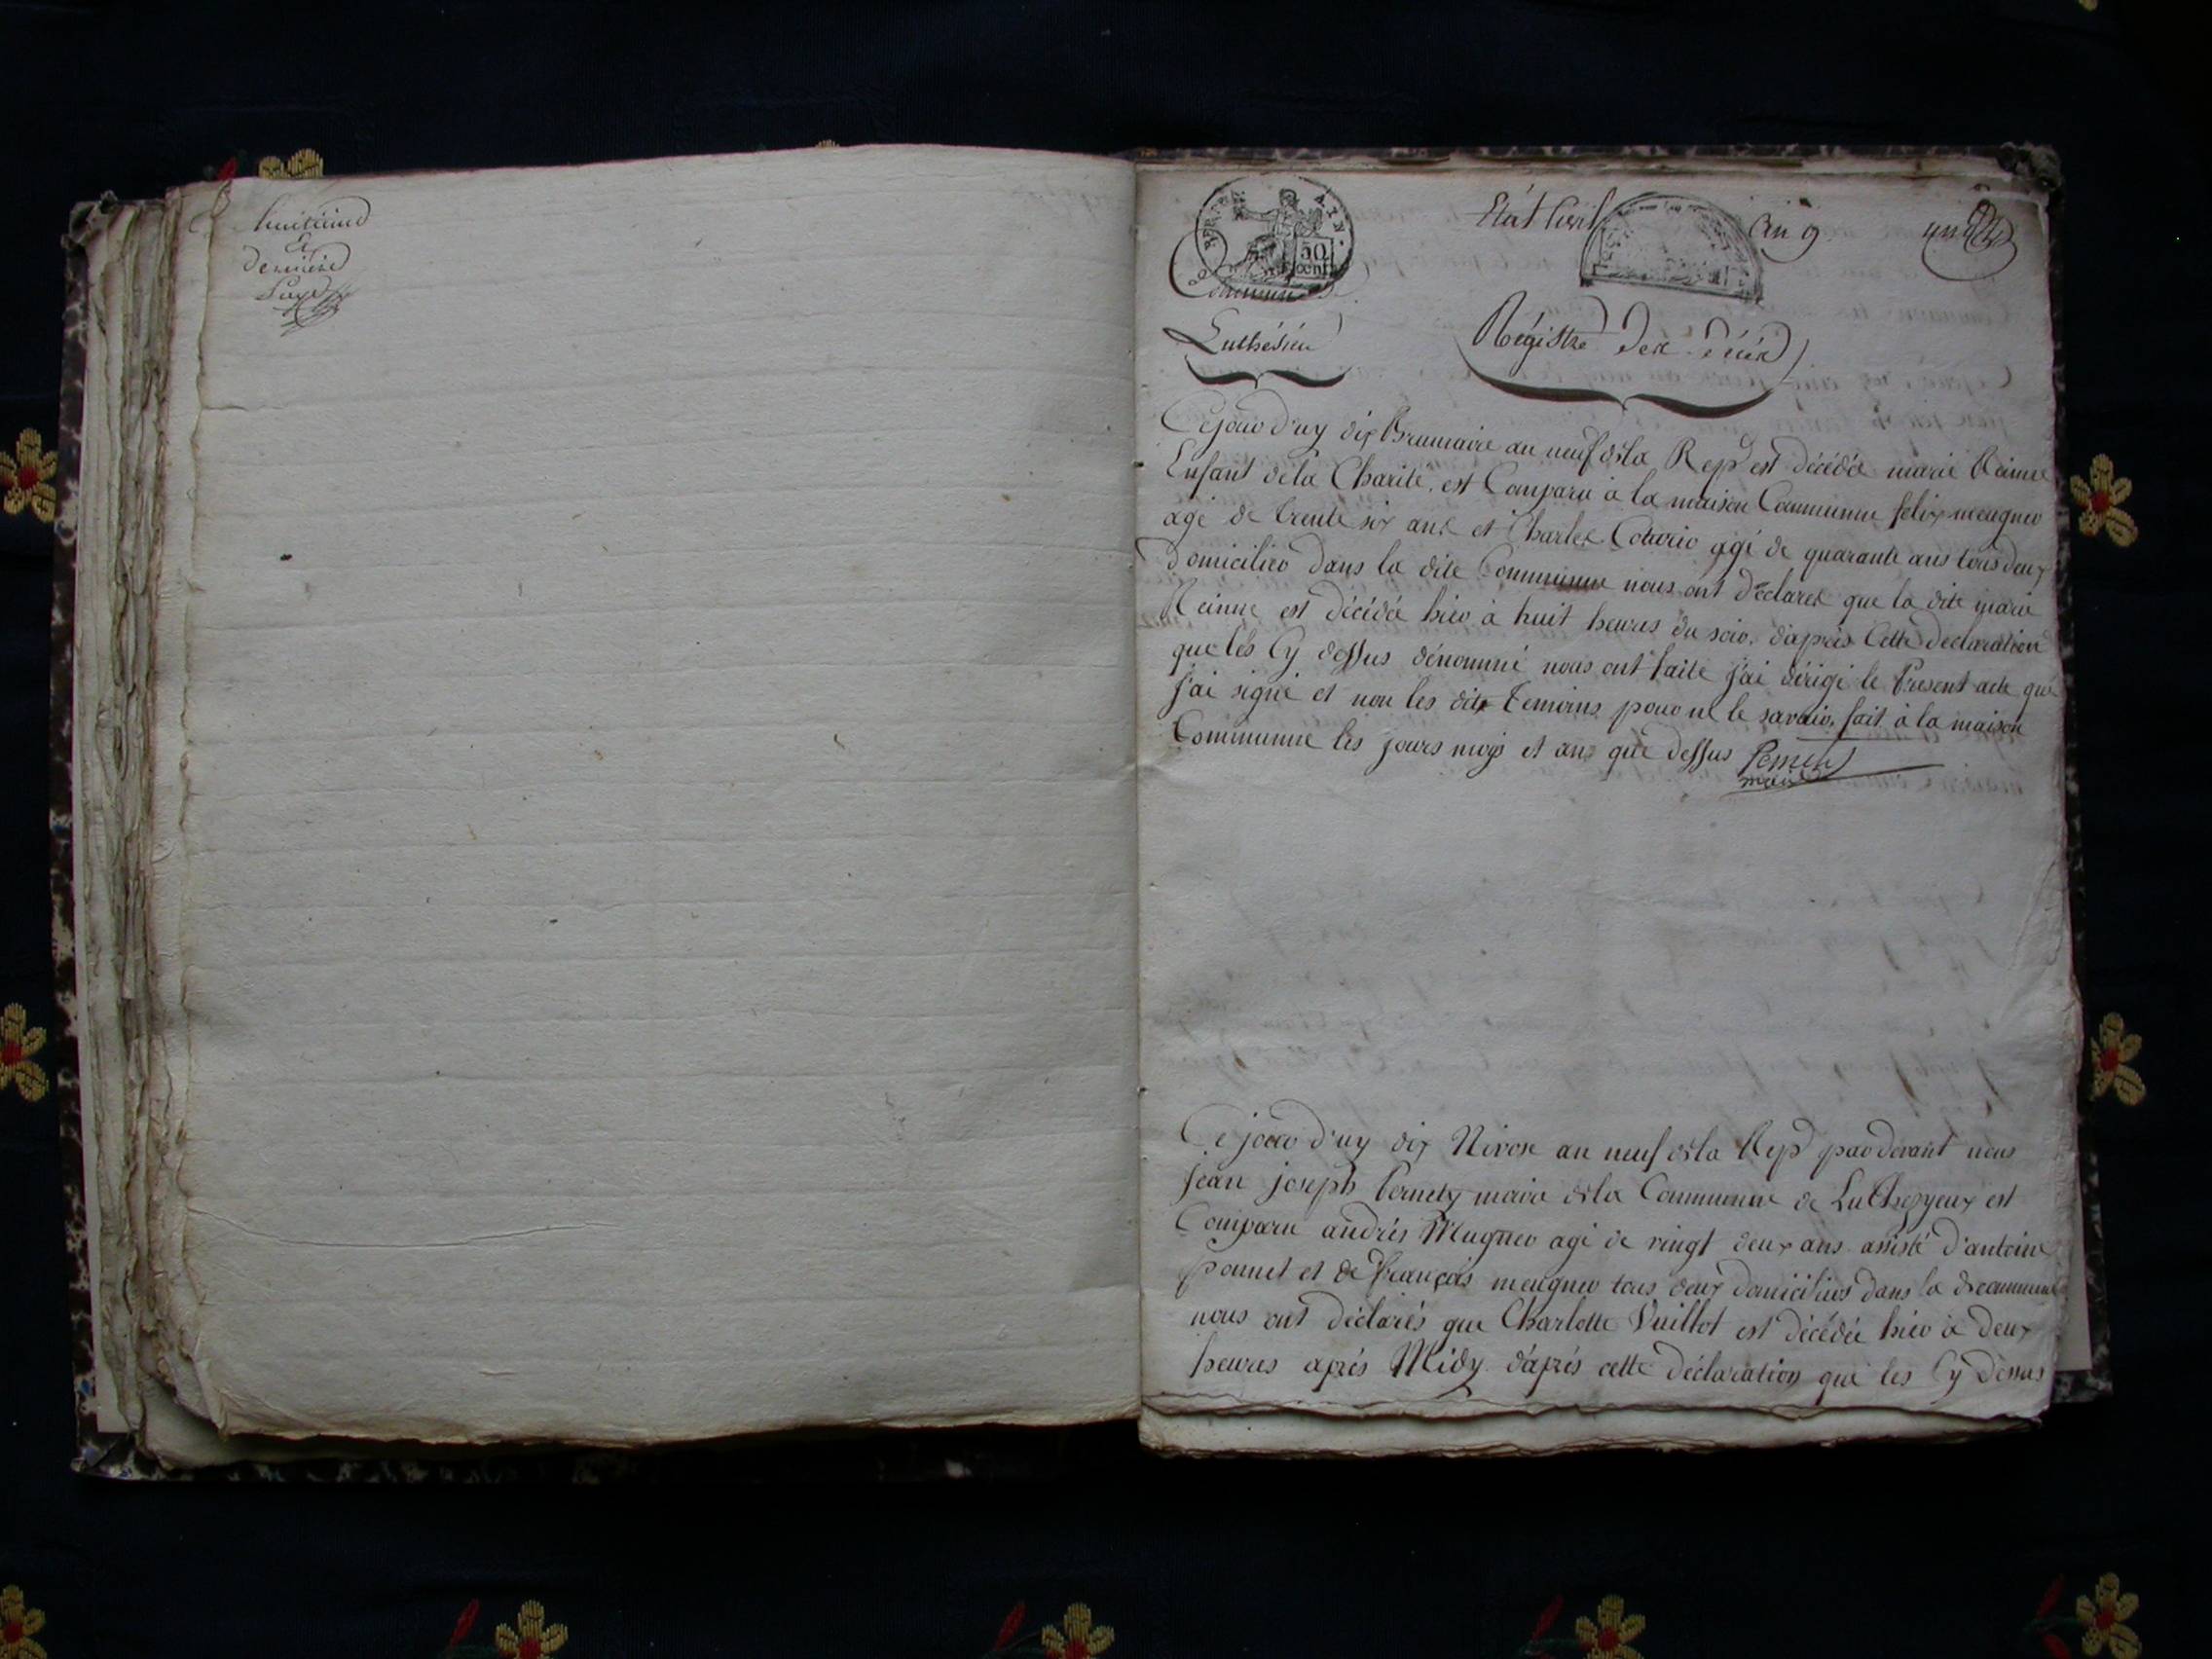 huitième
Et
dernière
page
Etat Civil
An 9
un
A I N
50
cent
Commune de
Luthésieu
Régistre des décés
Cejour d'uy dix Brumaire an neuf de la Rep est décédée marie Reinne
Enfant de la Charité, est Comparu à la maison Communne felix meugner
agé de trente six ans et Charles agé de quarante ans tous deux
Domicilier dans la dite Communne nous ont déclares que la dite marie
Reinne est décédée hier à huit heures du soir, d'après Cette declaration
que les Cy dessus dénommé nous ont faite j'ai dérigé le Present acte que
j'ai signé et non les dits temoins pour ne le savoir, fait à la maison
Communne les jours mois et ans que dessus
maire
Ce jour d'uy dix Nivose an neuf de la Rep par devant nous
jean joseph Pernety maire de la Communne de Luthezyeux est
Comparu andrés Mugner agé de vingt deux ans assisté d'antoine
ponnet et de françois meugner tous deux domiciliés dans la de commune
nous ont déclarés que Charlotte Vuillot est décédée hier à deux
heures aprés Midy d'aprés cette déclaration que les Cy dessus